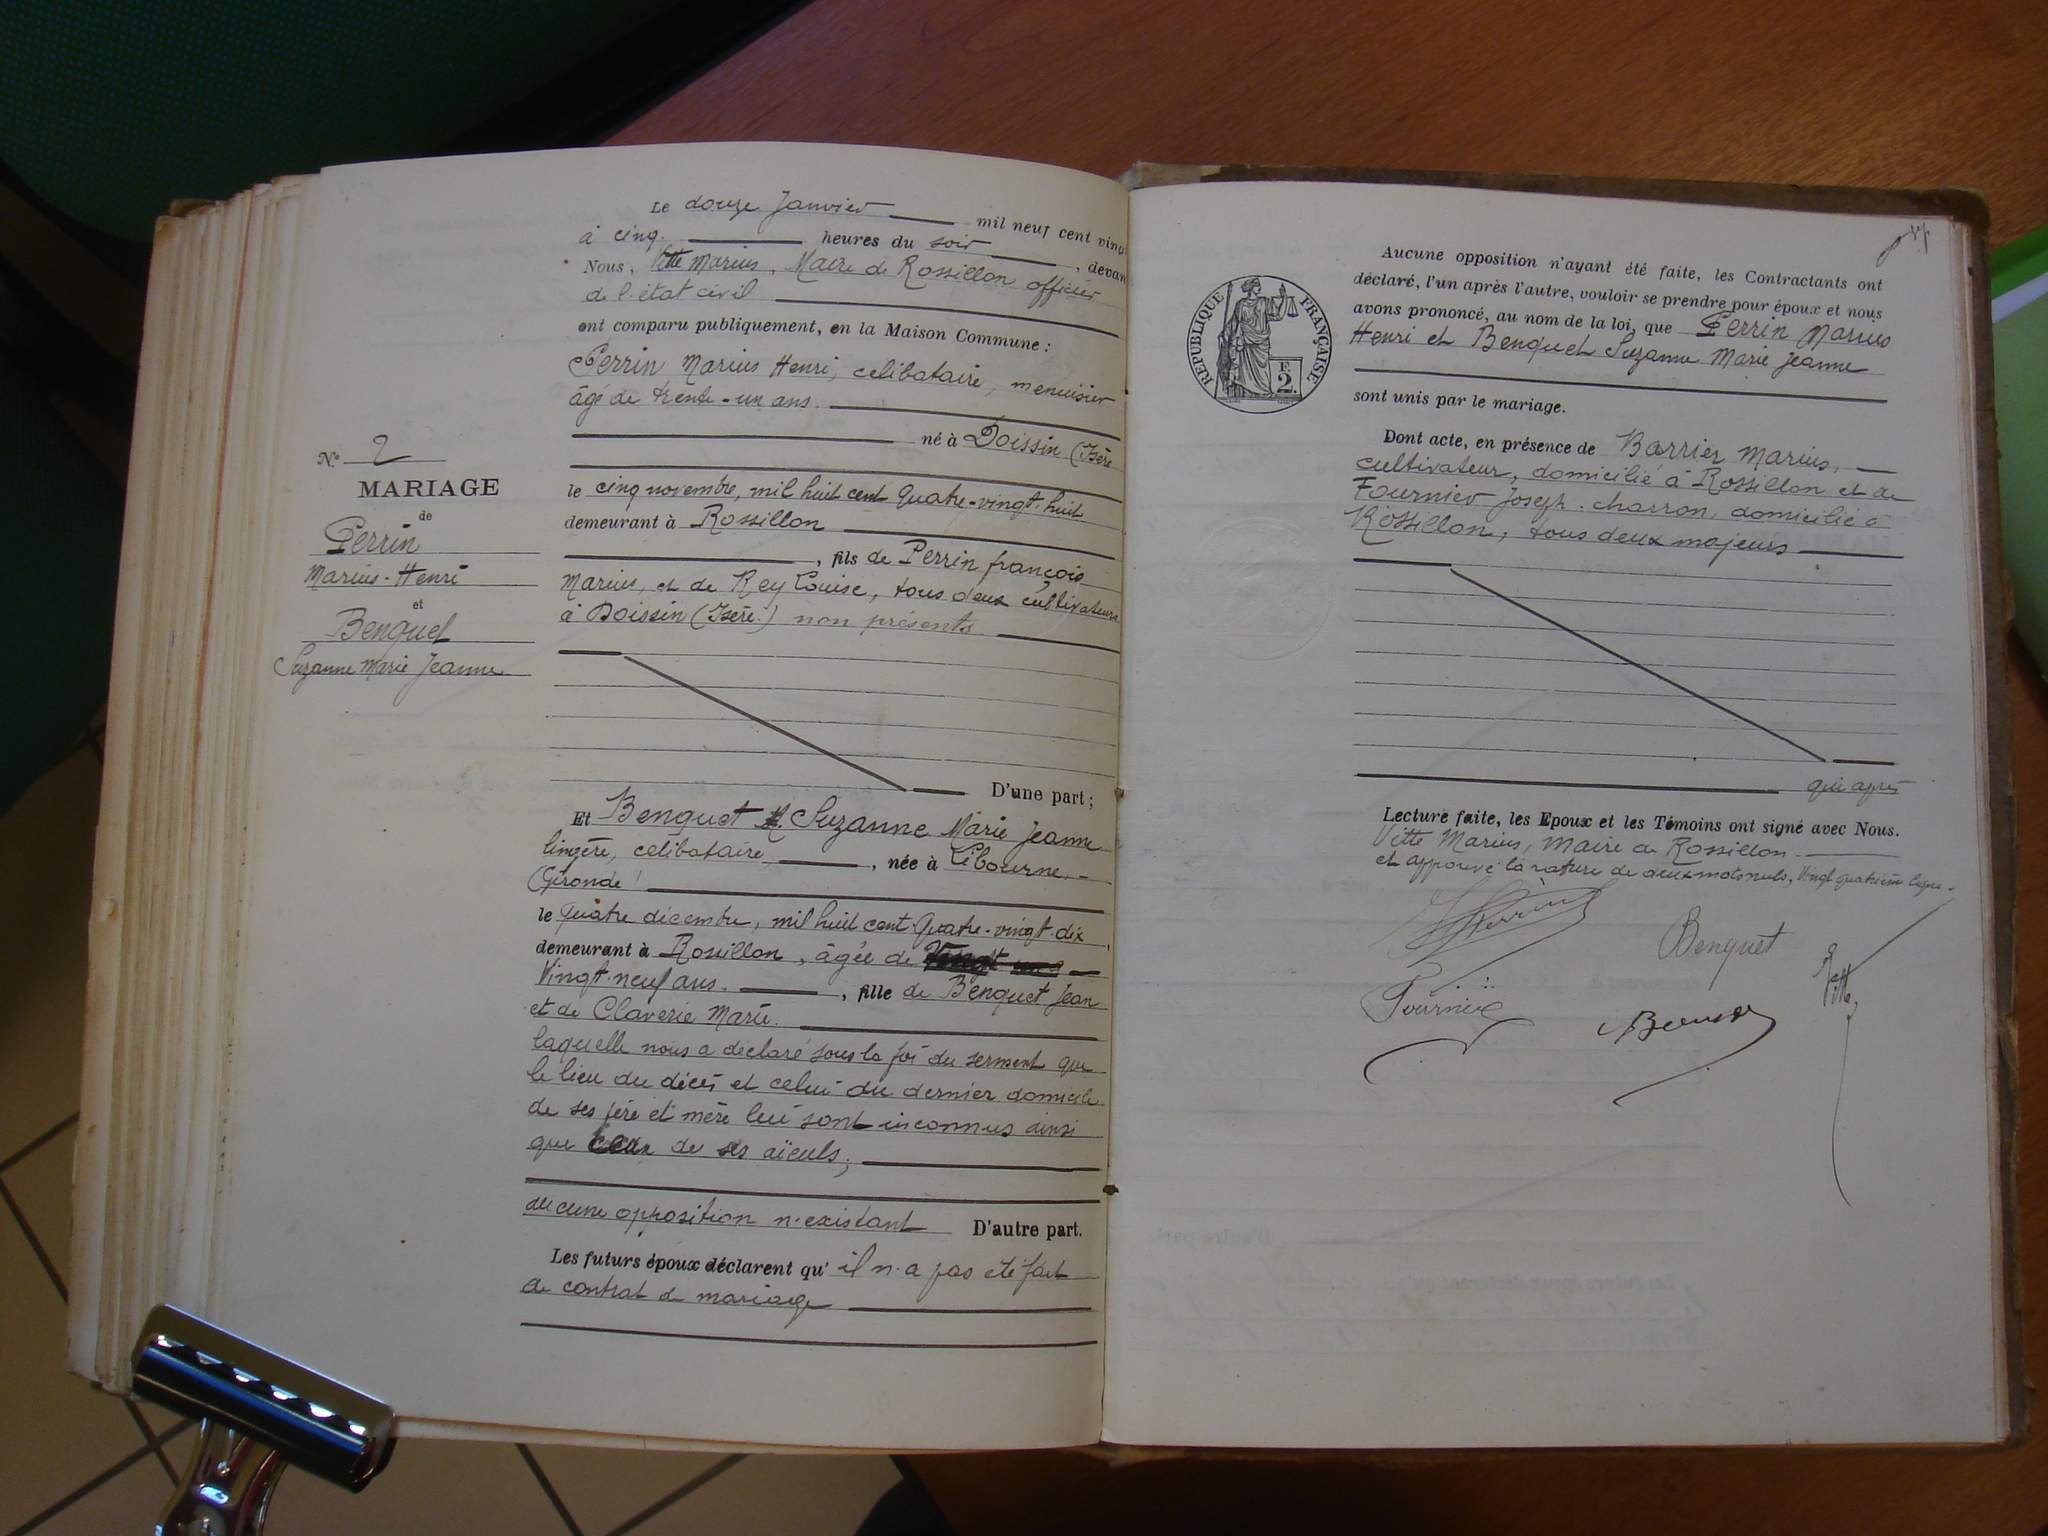 Le douze Janvier mil neuf cent vingt
à cinq heures du soir, devan
Nous, Vitte Marius, Maire de Rossillon officier
de l'état civil
ont comparu publiquement, en la Maison Commune :
Perrin Marius Henri, celibataire, menuisier
âgé de trente-un ans.
né à Doissin (Isère
le cinq novembre, mil huit cent quatre-vingt-huit
demeurant à Rossillon
, fils de Perrin françois
Marius, et de Rey Louise, tous deux cultivateurs
à Doissin (Isère.) non présents.
D'une part ;
Et Benquet Suzanne Marie Jeanne
lingère, celibataire, née à Libourne,
Gironde
le quatre décembre, mil huit cent quatre-vingt-dix,
demeurant à Rossillon, âgée de Vingt
Vingt-neuf ans., fille de Benquet Jean
et de Claverie Marie.
laquelle nous a déclaré sous la foi du serment que
le lieu du décès et celui du dernier domicile
de ses père et mère lui sont inconnus ainsi
que ceux de ses aïeuls;
aucune opposition n'existant D'autre part.
Les futurs époux déclarent qu'il n'a pas été fait
de contrat de mariage
N° 2
MARIAGE
de
Perrin
Marius-Henri
et
Benquet
Suzanne Marie Jeanne
RÉPUBLIQUE FRANÇAISE
F
2.
Aucune opposition n'ayant été faite, les Contractants ont
déclaré, l'un après l'autre, vouloir se prendre pour époux et nous
avons prononcé, au nom de la loi, que Perrin Marius
Henri et Benquet Suzanne Marie Jeanne
sont unis par le mariage.
Dont acte, en présence de Barrier Marius,
cultivateur, domicilié à Rossillon et de
Fournier Joseph. charron, domicilié à
Rossillon, tous deux majeurs
qui après
Lecture faite, les Epoux et les Témoins ont signé avec Nous.
Vitte Marius, Maire de Rossillon.
et approuvé la rature de deux mots nuls, Vingt quatrième ligne.
Perrin
Benquet
Vitte
Fournier